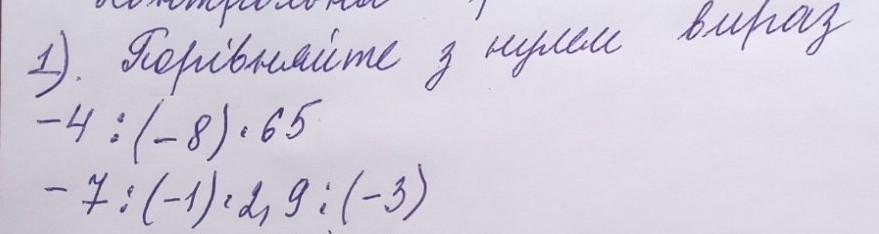 1). Порівняйте з нулем вираз
-4:(-8)·65
-7:(-1)·2,9:(-3)